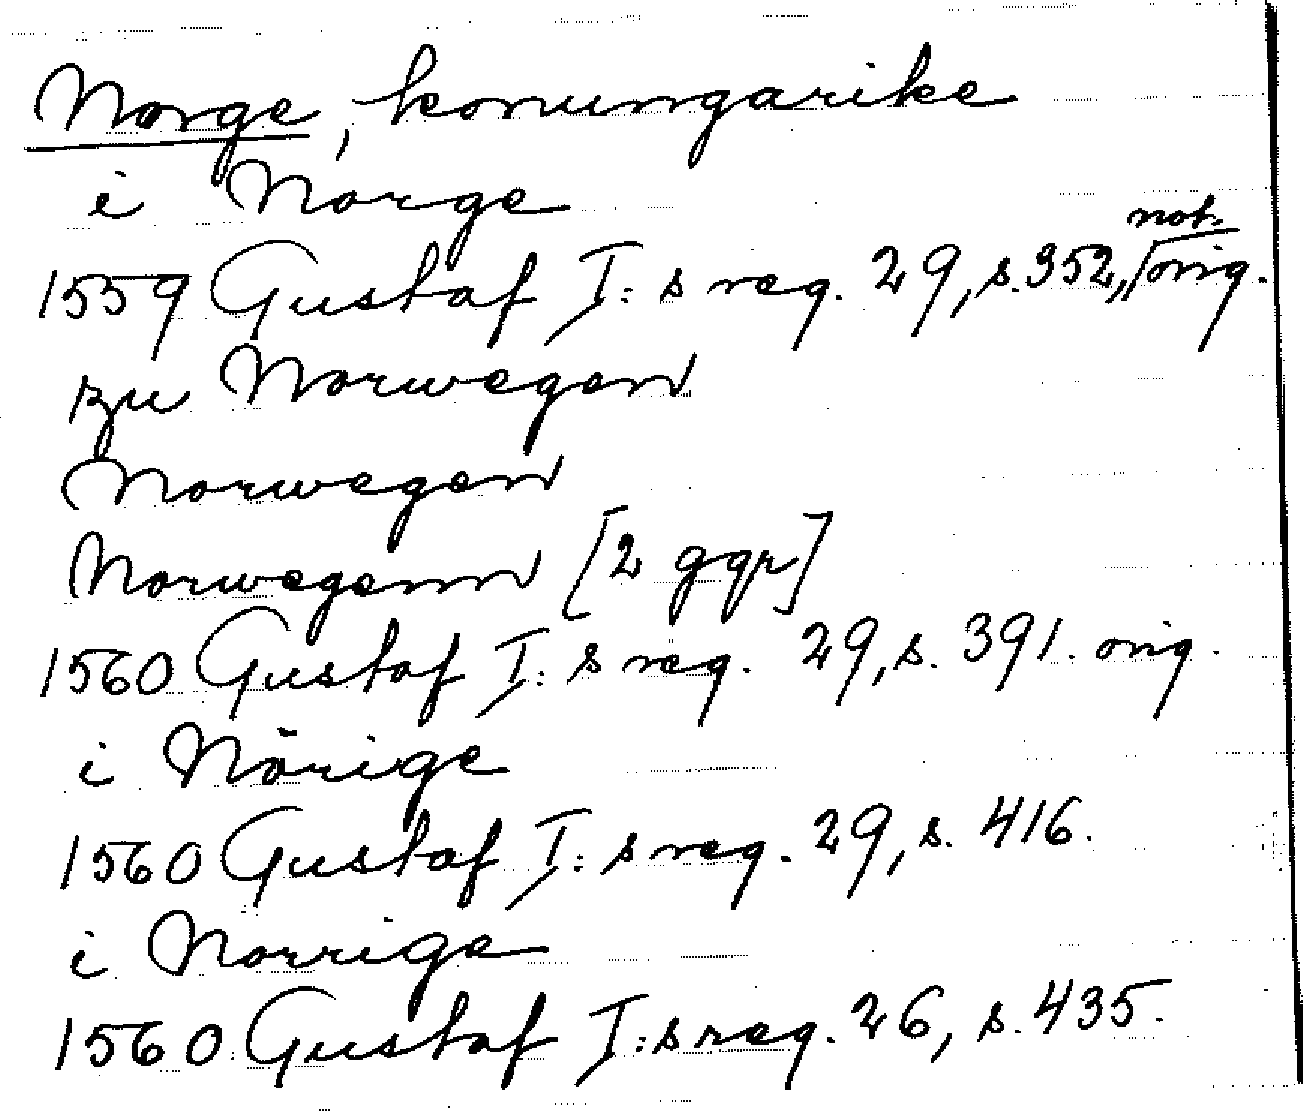 Norge, konungarike
i Norge
1559 Gustaf I:s reg. 29, s. 352, not. orig.
zu Norwegen
Norwegen
Norwegenn [2 ggr]
1560 Gustaf I:s reg. 29, s. 391. orig.
i Nörige
1560 Gustaf I:s reg. 29, s. 416.
i Norrige
1560 Gustaf I:s reg. 26, s. 435.